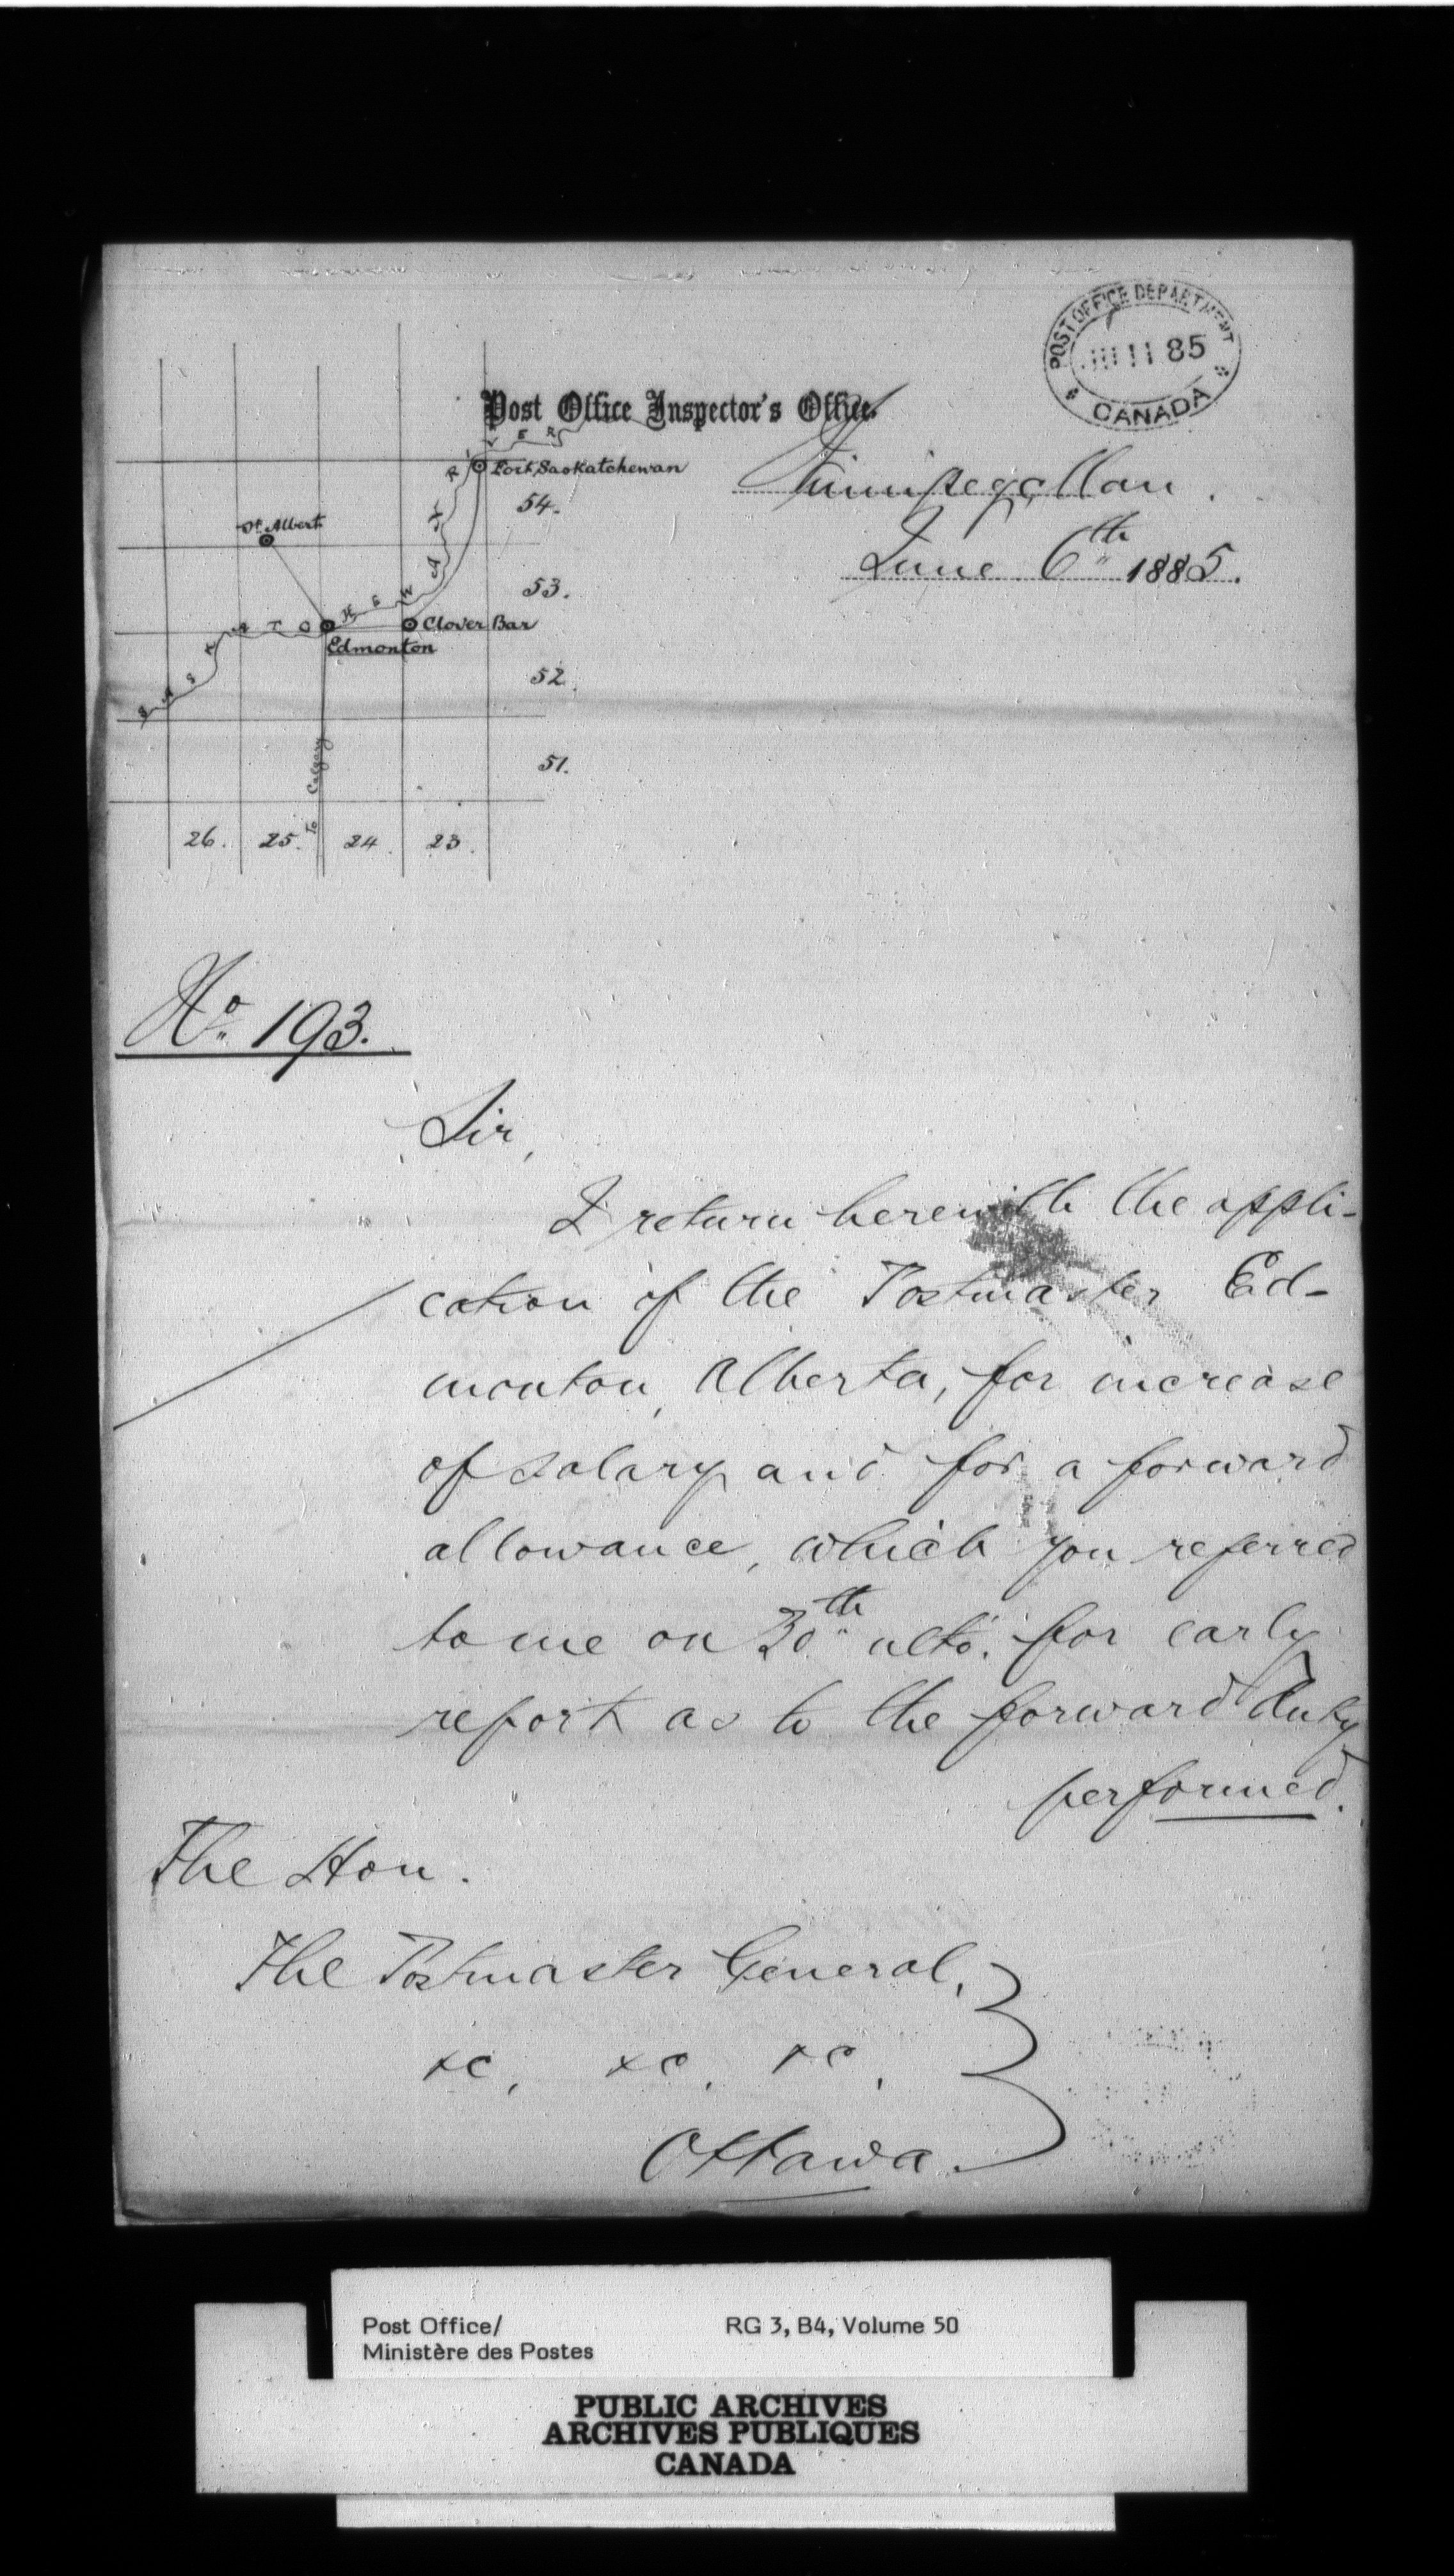 POST OFFICE DEPARTMENT
11 85
CANADA
Post Office Inspector's Office.
Winnipeg, Man.
June 6th 1885.
Fort Saskatchewan
54.
St. Albert
53.
SASKATCHEWAN RIVER
Clover Bar
Edmonton
52.
51.
To Calgary
26. 25. 24. 23.
No. 193.
Sir,
I return herewith the appli-
cation of the Postmaster Ed-
monton, Alberta, for increase
of salary and for a forward
allowance, which you referred
to me on 30th ulto. for early
report as to the forward duty
performed.
The Hon.
The Postmaster General,
&c, &c, &c,
Ottawa.
Post Office/ RG 3, B4, Volume 50
Ministère des Postes
PUBLIC ARCHIVES
ARCHIVES PUBLIQUES
CANADA